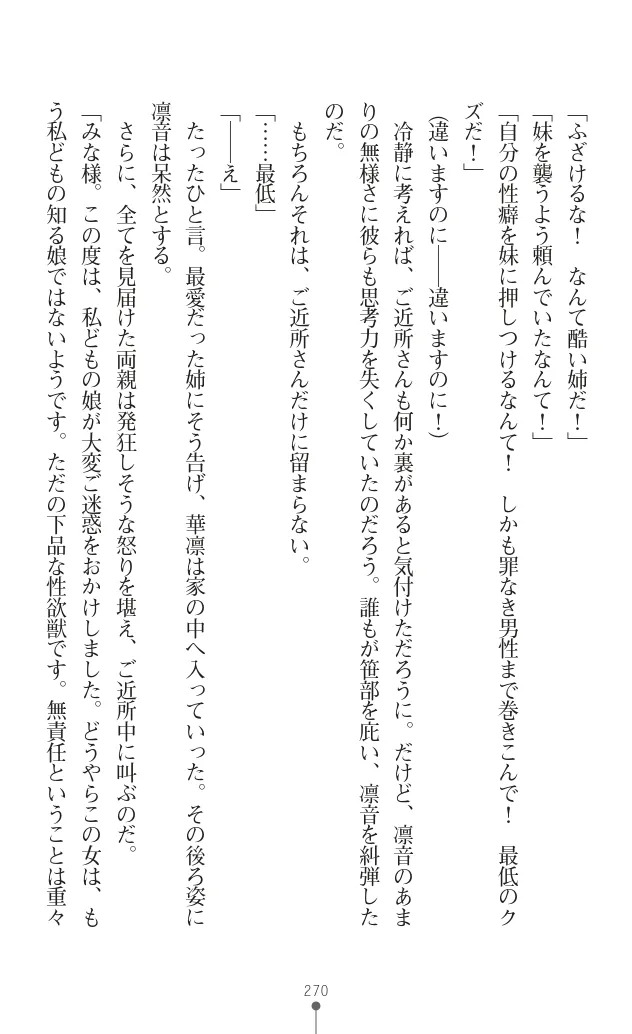 「ふざけるな！　なんて酷い姉だ！」
「妹を襲うよう頼んでいたなんて！」
「自分の性癖を妹に押しつけるなんて！　しかも罪なき男性まで巻きこんで！　最低のク
ズだ！」
（違いますのに――違いますのに！）
　冷静に考えれば、ご近所さんも何か裏があると気付けただろうに。だけど、凛音のあま
りの無様さに彼らも思考力を失くしていたのだろう。誰もが笹部を庇い、凛音を糾弾した
のだ。
　もちろんそれは、ご近所さんだけに留まらない。
「……最低」
「――え」
　たったひと言。最愛だった姉にそう告げ、華凛は家の中へ入っていった。その後ろ姿に
凛音は呆然とする。
　さらに、全てを見届けた両親は発狂しそうな怒りを堪え、ご近所中に叫ぶのだ。
「みな様。この度は、私どもの娘が大変ご迷惑をおかけしました。どうやらこの女は、も
う私どもの知る娘ではないようです。ただの下品な性欲獣です。無責任ということは重々
270